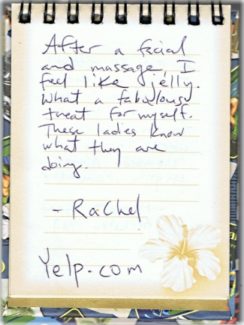 After a facial
and massage, I
feel like jelly.
What a fabulous
treat for myself.
These ladies know
what they are
doing.
- Rachel
Yelp.com